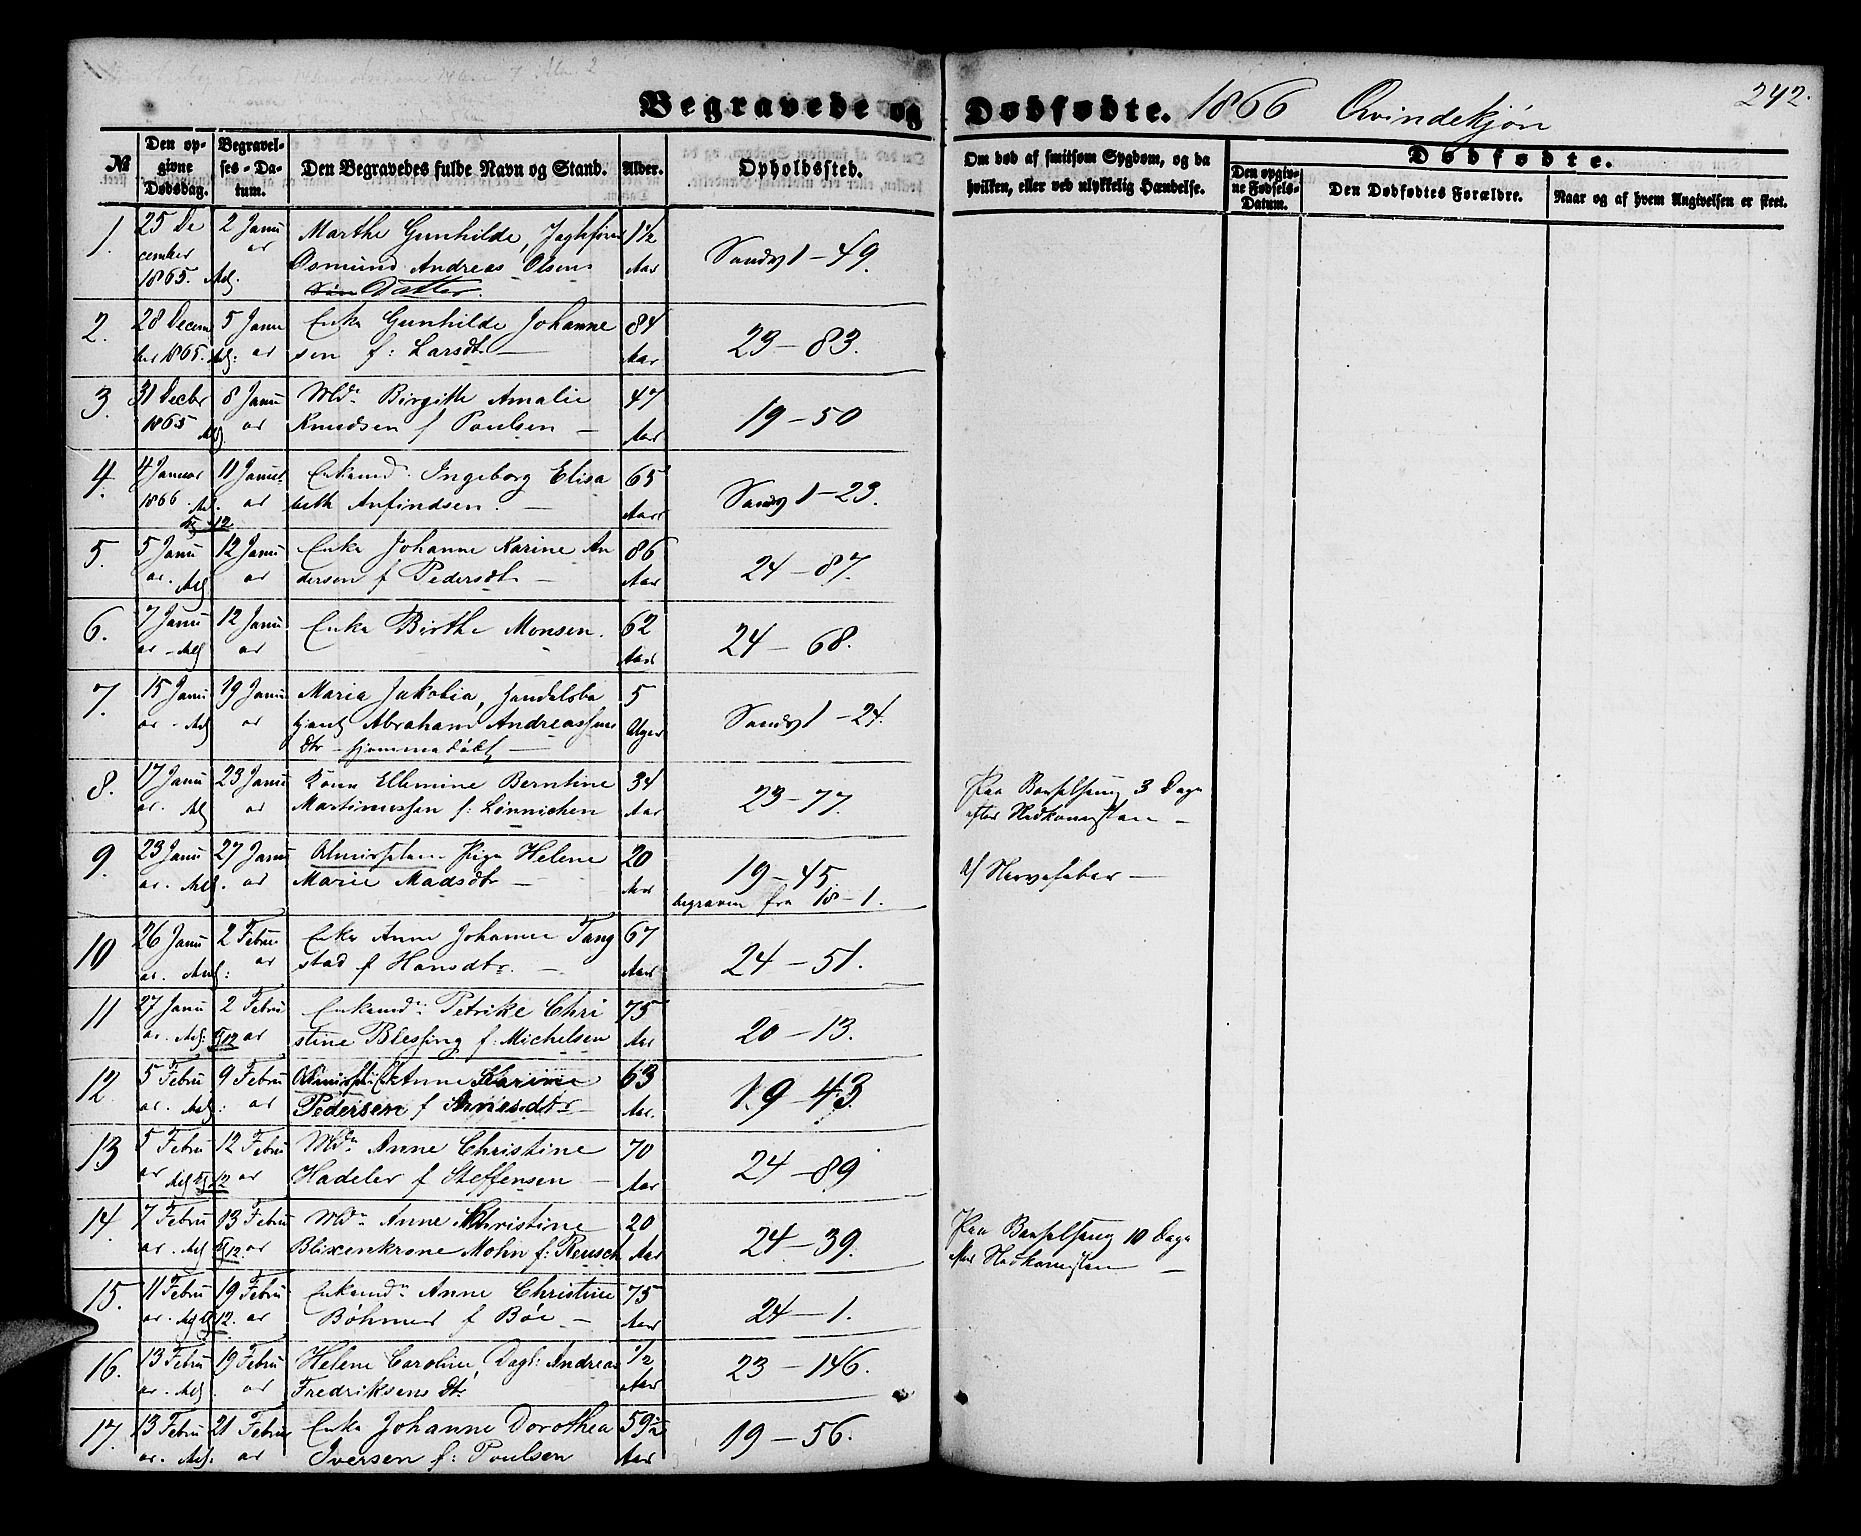 Begravede og Dødfødte. 1866 Qvindekjøn 242.
№ Den opgivne Dødsdag. Begravelses-Datum. Den Begravedes fulde Navn og Stand. Alder. Opholdssted. Om død af smitsom Sygdom, og da hvilken, eller ved ulykkelig Hændelse. Dødfødte.
Den opgivne Fødsels-Datum. Den Dødfødtes Forældre. Naar og af hvem Angivelsen er skeet.
1. 25 De 2 Janu Marthe Gunhilde, 1½
cember ar Osmund Andreas Olsens Aar Sandv 1 - 49.
1865. Datter.
2. 28 Decem 5 Janu Enke Gunhilde Johanne 84
ber 1865. ar sen f: Larsdtr - Aar 23 - 83.
3. 31 Decbr 8 Janu Md. Birgitte Amalie 47
1865 ar Knudsen f Poulsen - Aar 19 - 50
4. 4 Januar 11 Janu Enkemd. Ingeborg Elisa 65
1866. ar beth Anfindsen. - Aar Sandv 1 - 23.
5. 5 Janu 12 Janu Enke Johanne Karine An 86
ar. ar dersen f Pedersdtr - Aar 24 - 87.
6. 7 Janu 12 Janu Enke Birthe Monsen. 62
ar ar Aar 24 - 68.
7. 15 Janu 19 Janu Maria Jakobia, Handelsbe 5
ar ar tjent Abraham Andreassens Uger Sandv 1 - 24.
dtr - hjemmedøbt -
8. 17 Janu 23 Janu Kone Ellemine Berntine 34 Paa Barselseng 3 Dage
ar. ar Martinussen f: Lønnichen Aar 23 - 77. efter Nedkomsten -
9. 23 Janu 27 Janu Pige Helene 20
ar. ar Marie Madsdtr - Aar 19 - 45 af Nervefeber -
begraven fra 18 - 1.
10 26 Janu 2 Febru Enke Anne Johanne Tang 67
ar. ar stad f Hansdtr. - Aar 24 - 51.
11 27 Janu 2 Febru Enkemd: Petrike Chri 75
ar. ar stine Blessing f: Michelsen Aar 20 - 13.
12. 5 Febru 9 Febru Anne Karine 63
ar. ar Pedersen f Arnesdtr - Aar. 19 - 43.
13. 5 Febru 12 Febru Md. Anne Christine 70
ar 12 ar Hadeler f Steffensen - Aar 24 - 89
14. 7 Febru 13 Febru Md. Anne Christine 20 Paa Barselseng 10 Dage
ar. 12. ar Blixenkrone Mohn f: Reusch Aar 24 - 39. efter Nedkomsten -
15. 11 Febru 19 Febru Enkemd. Anne Christine 75
ar. 12. ar Bøhmer f Bøe - Aar 24 - 1.
16. 13 Febru 19 Febru Helene Caroline, Dagl: Andreas ½
ar. ar Fredriksens Dtr. Aar 23 - 146.
17. 13 Febru 21 Febru Enke Johanne Dorothea 59½
ar. ar Iversen f: Poulsen Aar 19 - 56.